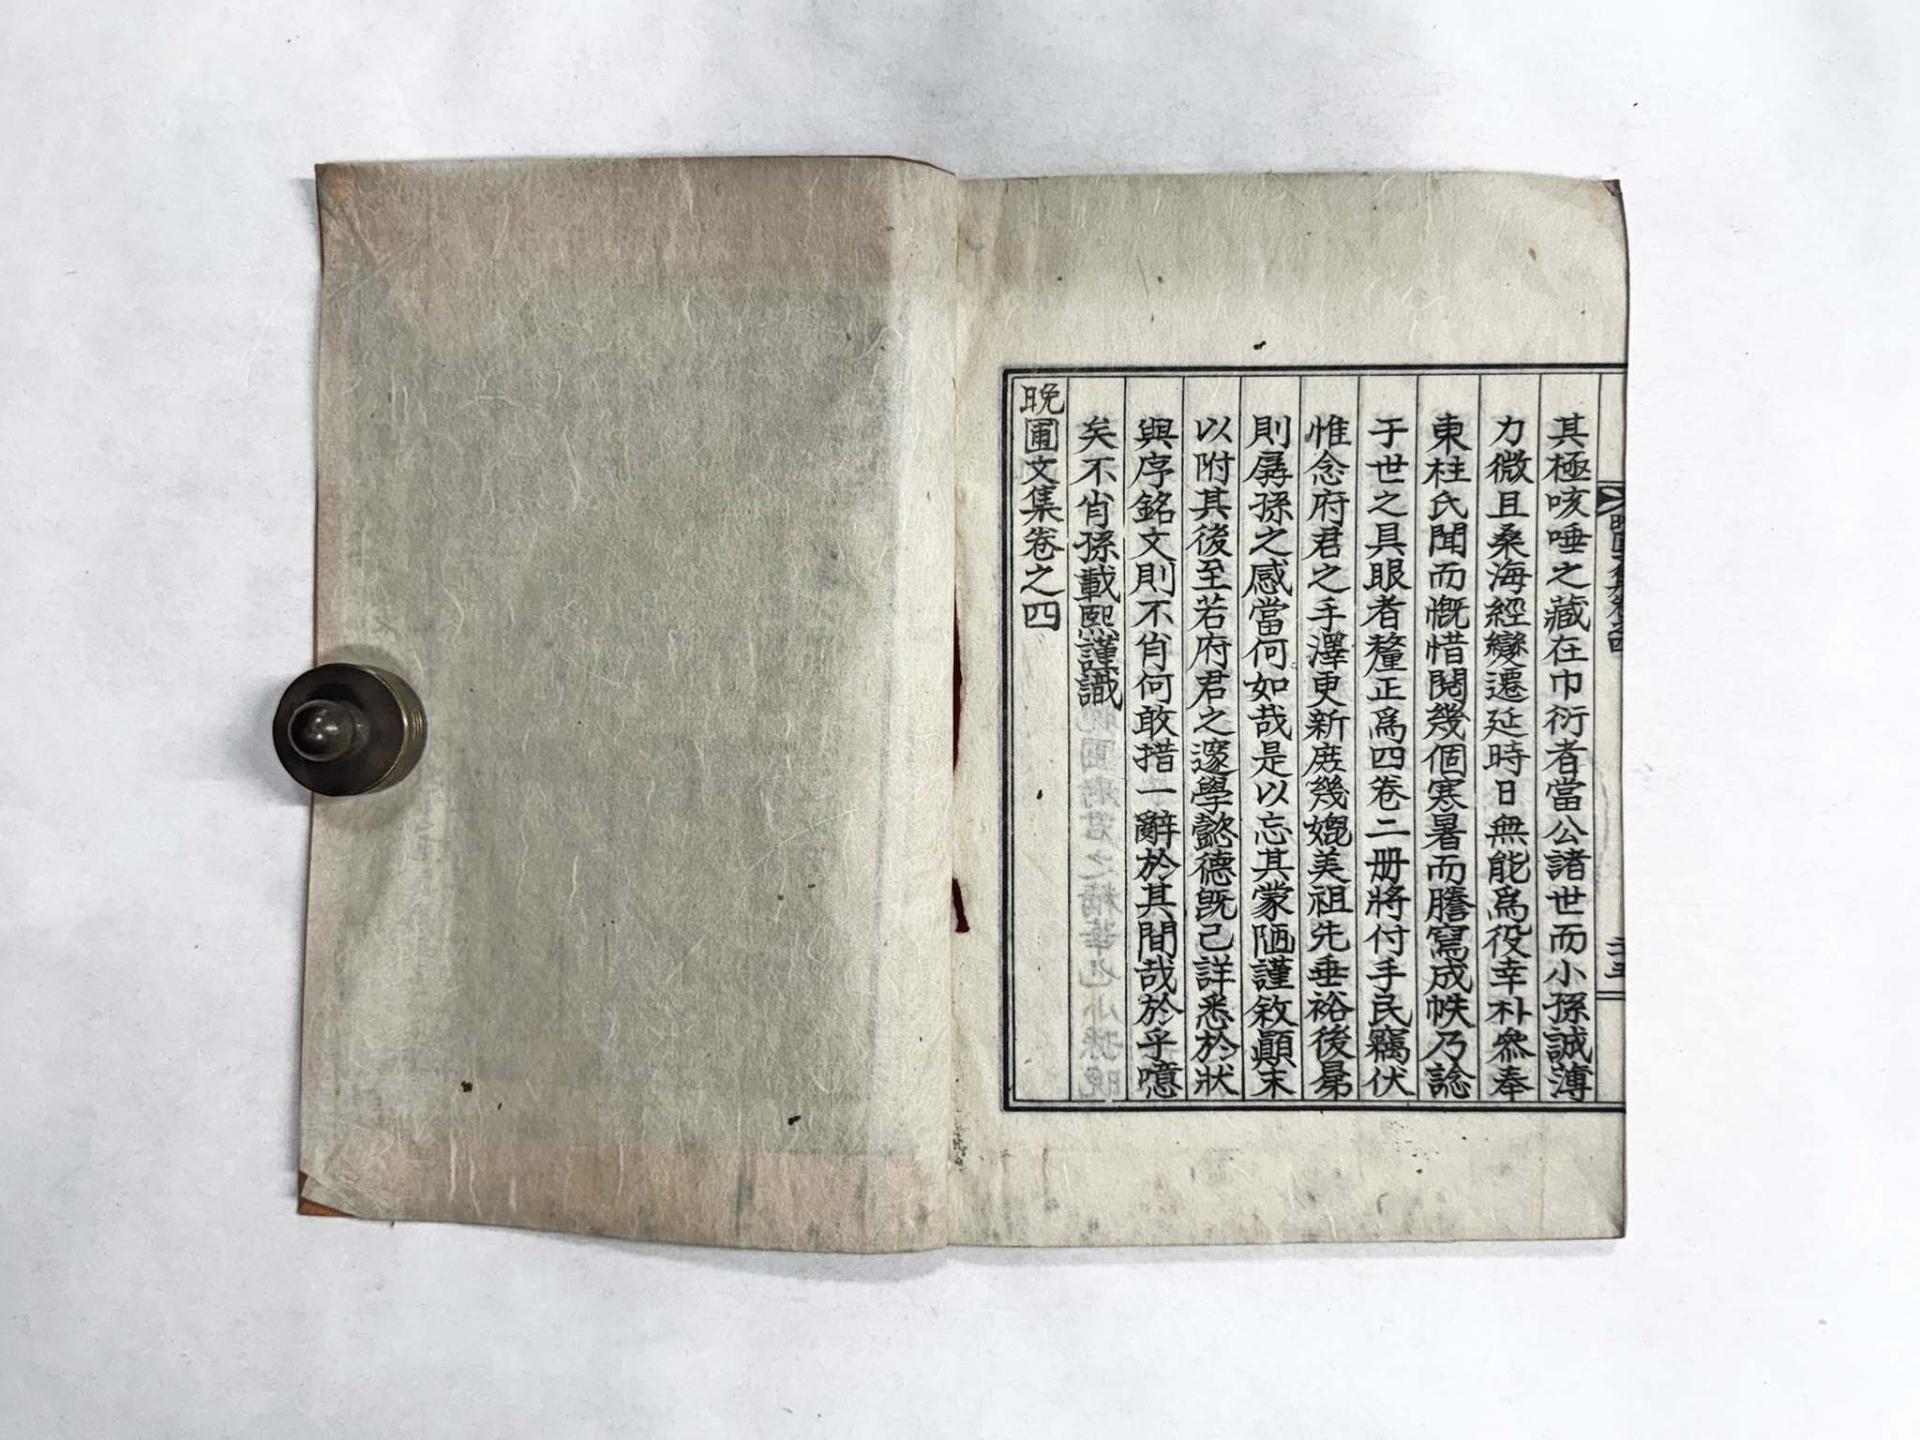 其極咳唾之藏在巾衍者當公諸世而小孫誠薄
力微且桑海經變遷延時日無能爲役幸朴參奉
東柱氏聞而慨惜閱幾個寒暑而謄寫成帙乃諗
于世之具眼者釐正爲四卷二册將付手民竊伏
惟念府君之手澤更新庶幾媲美祖先垂裕後昴
則孱孫之感當何如哉是以忘其蒙陋謹敘顚末
以附其後至若府君之邃學懿德旣已詳悉於狀
與序銘文則不肖何敢措一辭於其間哉於乎噫
矣不肖孫載熙謹識
晩圃文集卷之四